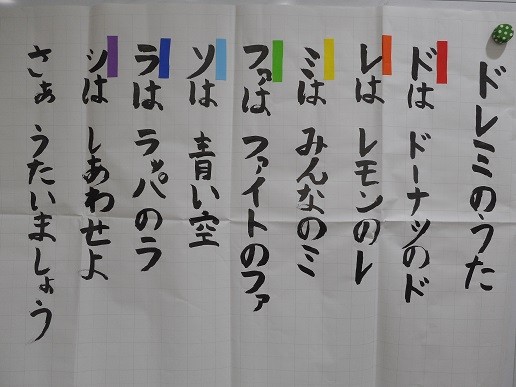 ドレミのうた
ドは ドーナツのド
レは レモンのレ
ミは みんなのミ
ファは ファイトのファ
ソは 青い空
ラは ラッパのラ
シは しあわせよ
さぁ うたいましょう